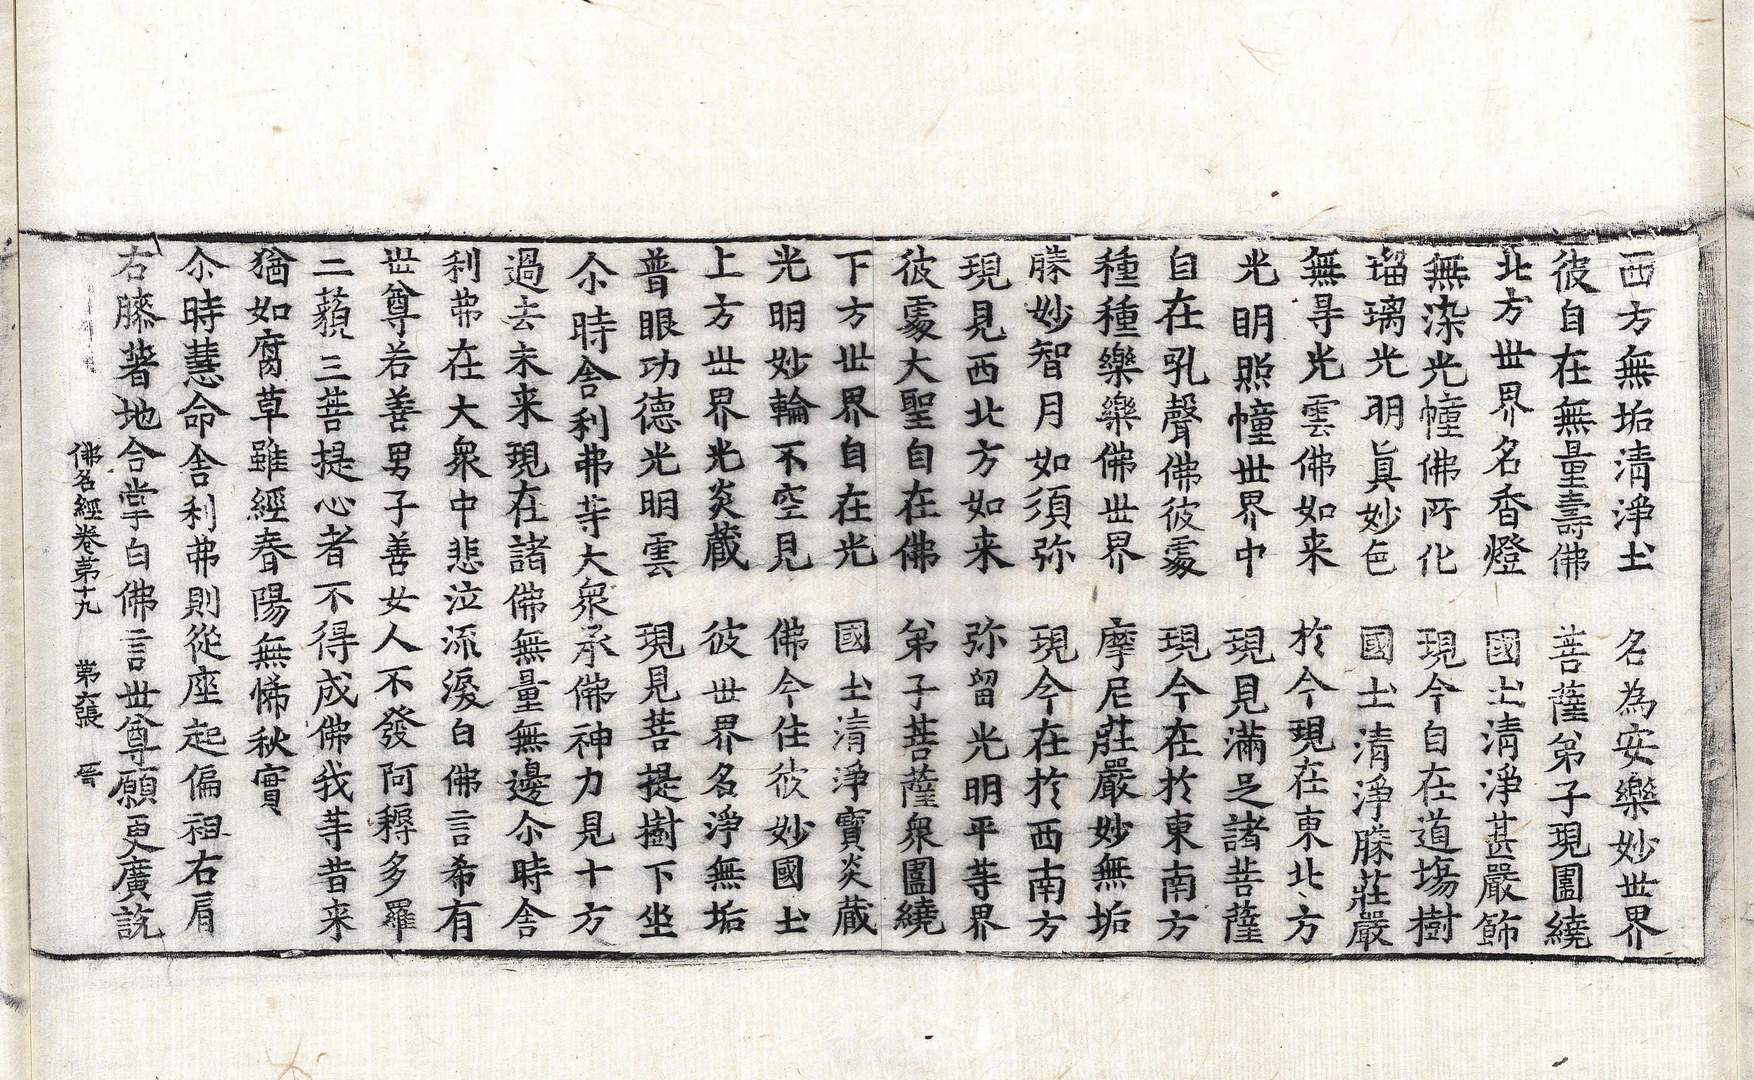 西方無垢清淨土　名為安樂妙世界
彼自在無量壽佛　菩薩弟子現圍繞
北方世界名香燈　國土清淨甚嚴飾
無染光幢佛所化　現今自在道場樹
瑠璃光明真妙色　國土清淨勝莊嚴
無㝵光雲佛如来　於今現在東北方
光明照幢世界中　現見滿足諸菩薩
自在乳聲佛彼處　現今在於東南方
種種樂樂佛世界　摩尼莊嚴妙無垢
勝妙智月如須弥　現今在於西南方
現見西北方如来　弥留光明平等界
彼處大聖自在佛　弟子菩薩衆圍繞
下方世界自在光　國土清淨寶炎藏
光明妙輪不空見　佛今住彼妙國土
上方世界光炎藏　彼世界名淨無垢
普眼功德光明雲　現見菩提樹下坐
尒時舎利弗等大衆承佛神力見十方
過去未来現在諸佛無量無邊尒時舎
利弗在大衆中悲泣流淚白佛言希有
世尊若善男子善女人不發阿耨多羅
三藐三菩提心者不得成佛我等昔来
猶如腐草雖經春陽無悕秋實
尒時慧命舎利弗則從座起偏袒右肩
右膝著地合掌白佛言世尊願更廣說
佛名經卷第十九　第六張